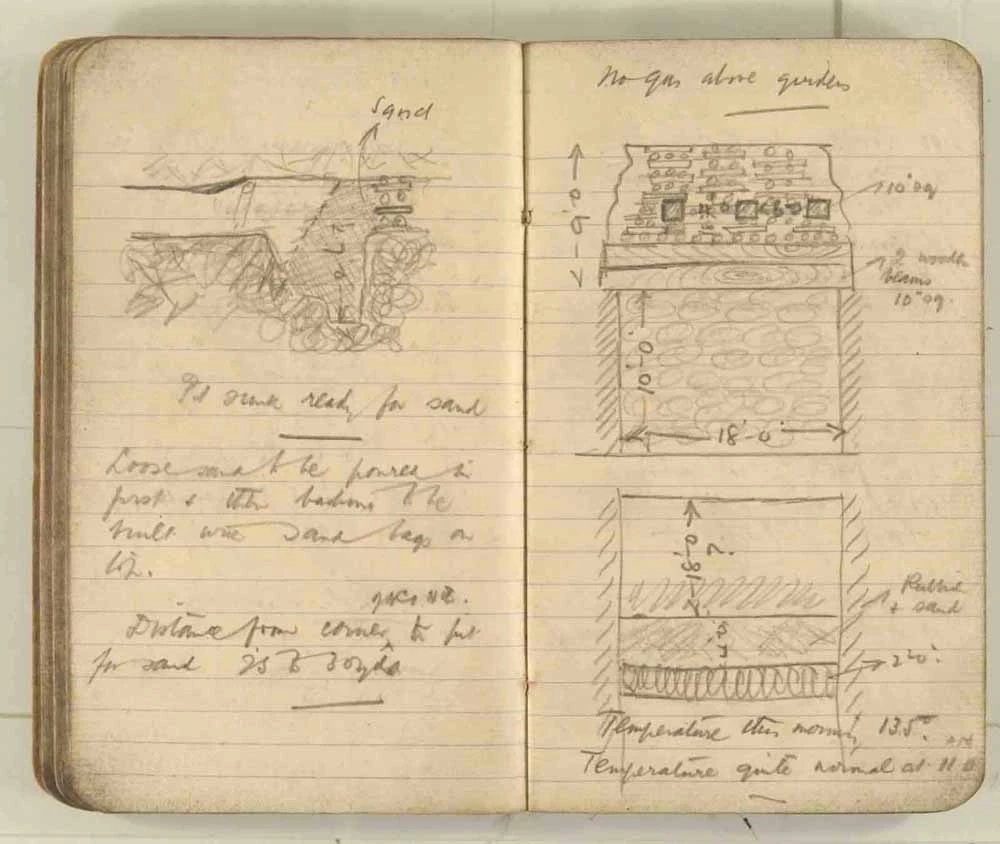 Sand
Pit sunk ready for sand
Loose sand to be poured in
first & then to be
built with Sand bags on
top.
Distance from corner to pit
for sand 25 to 30 yds
No gas above girders
6'-0"
10" sq
2 wooden
beams
10" sq.
10'-0"
18'-0"
?
Rubble
& sand
2'0"
Temperature this morning 135°.
Temperature quite normal at 11